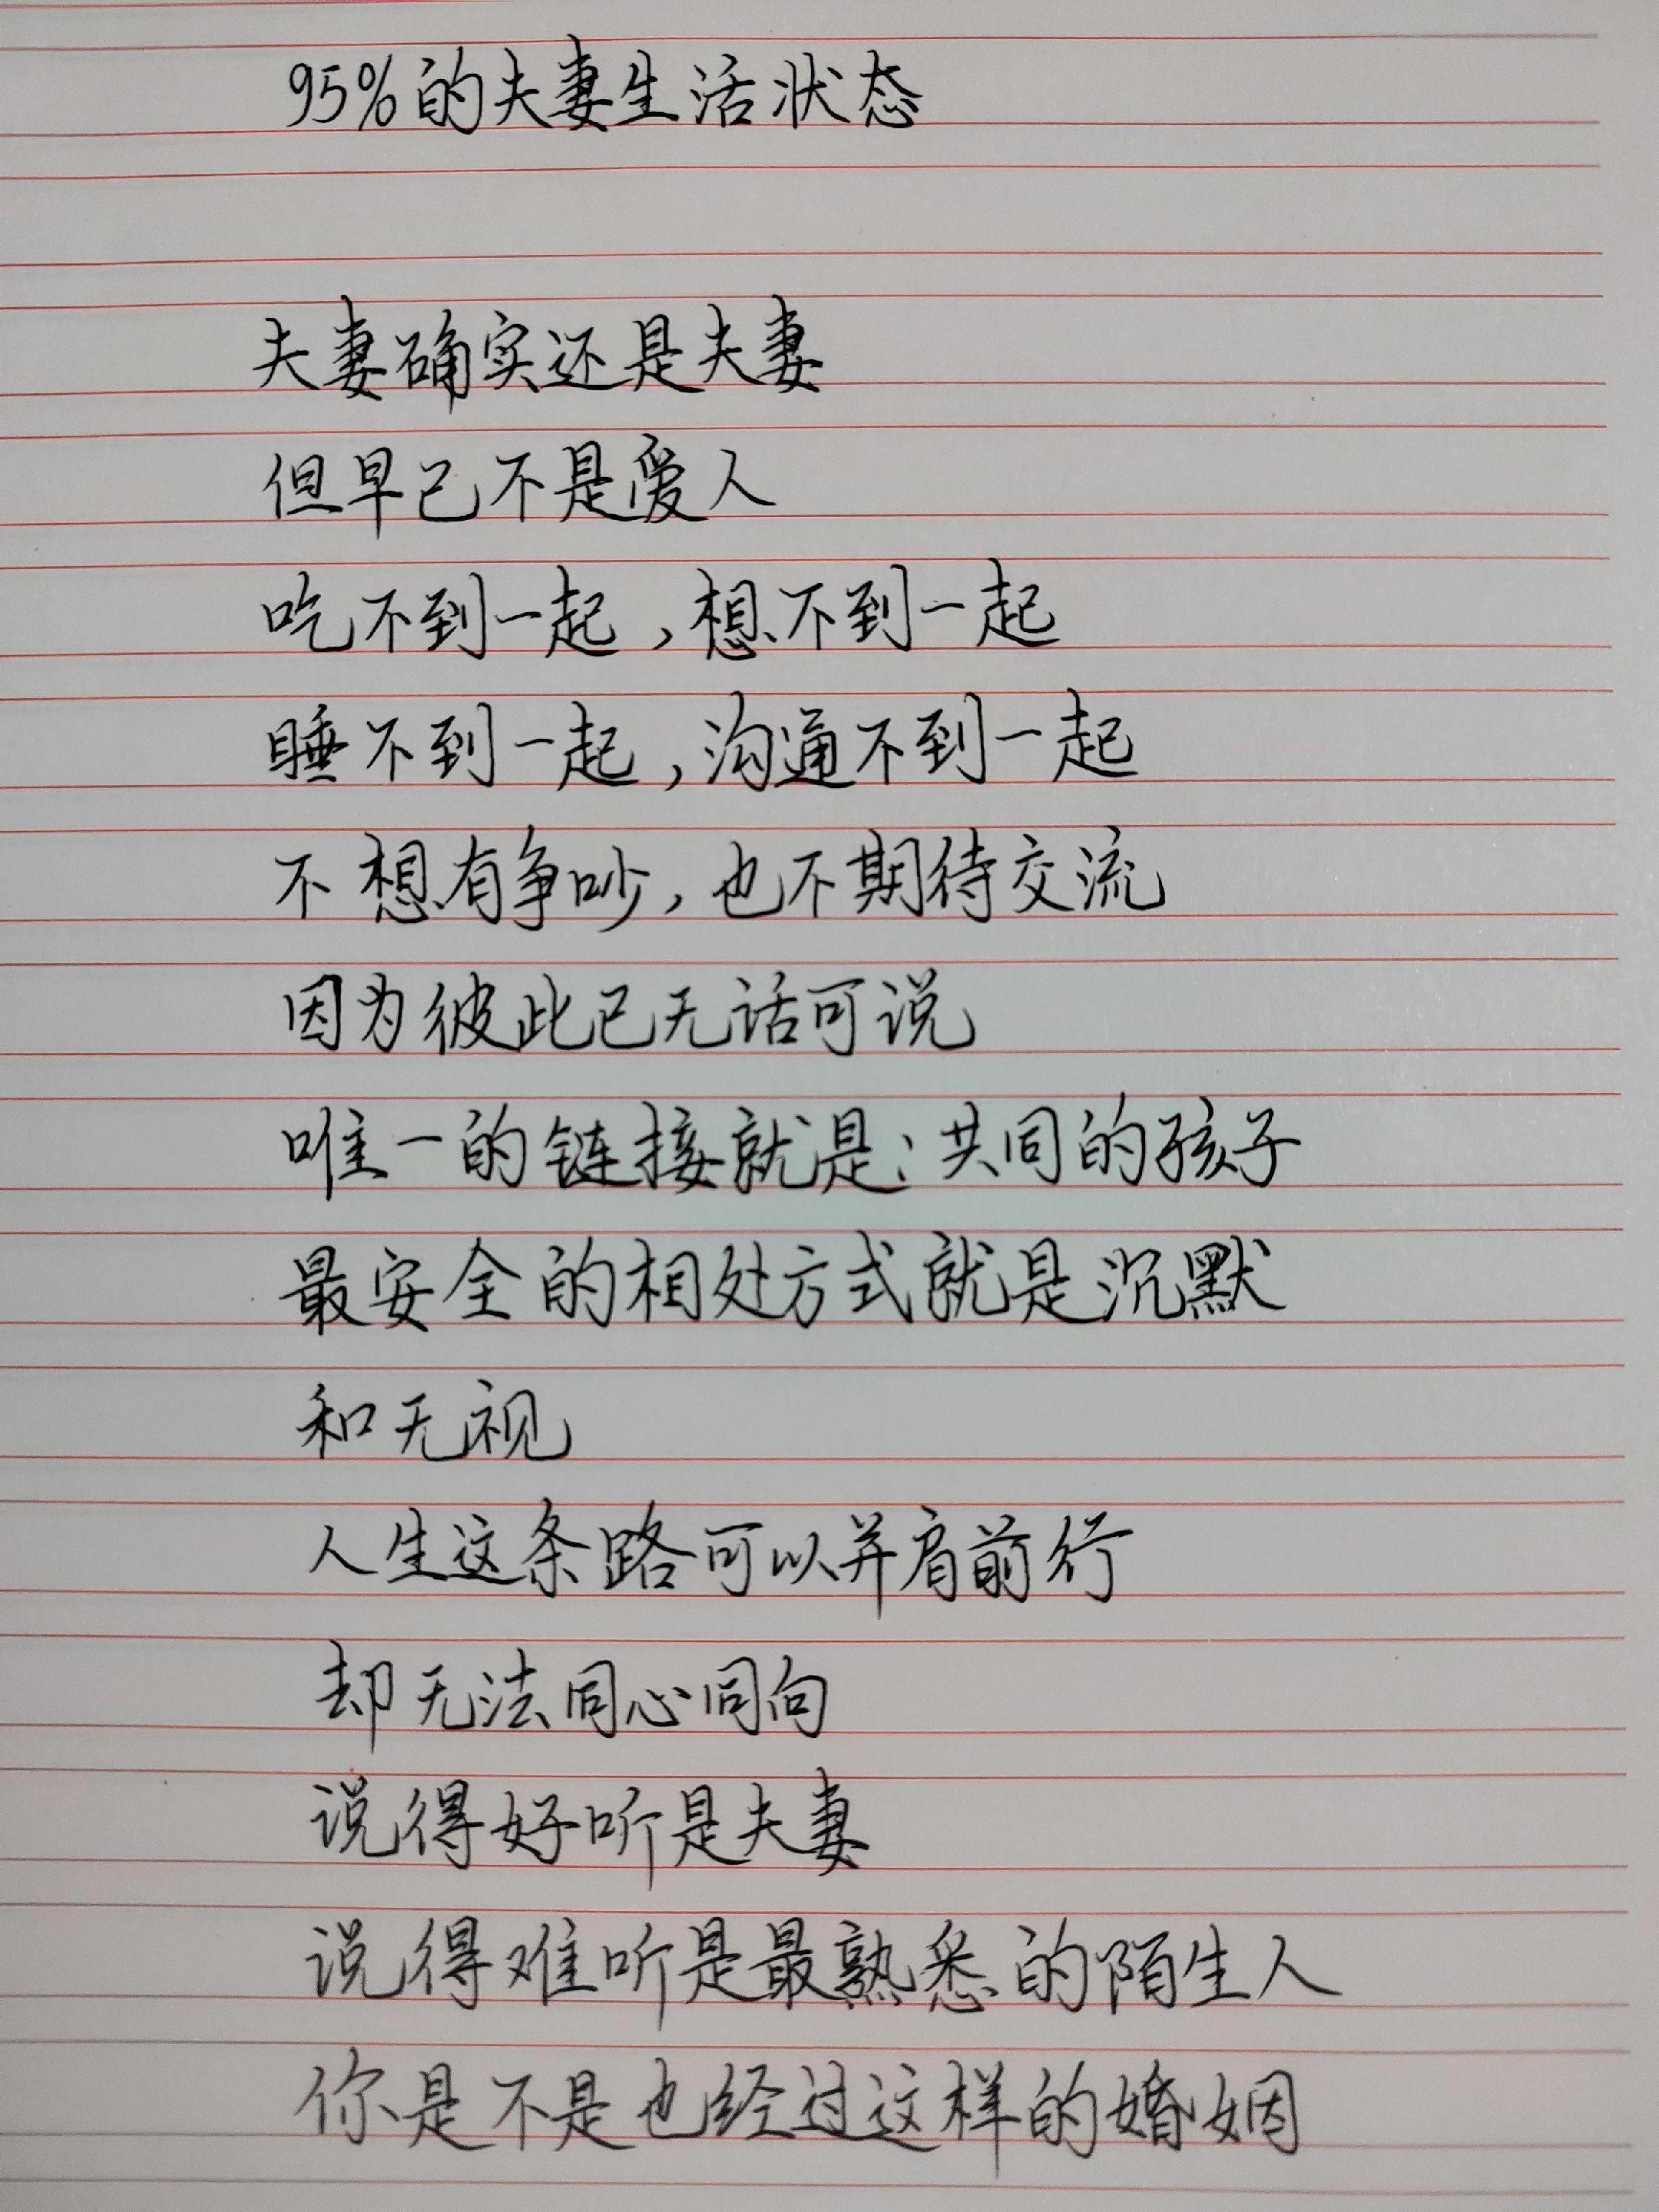 95%的夫妻生活状态
夫妻确实还是夫妻
但早已不是爱人
吃不到一起,想不到一起
睡不到一起,沟通不到一起
不想有争吵,也不期待交流
因为彼此已无话可说
唯一的链接就是:共同的孩子
最安全的相处方式就是沉默
和无视
人生这条路可以并肩前行
却无法同心同向
说得好听是夫妻
说得难听是最熟悉的陌生人
你是不是也经过这样的婚姻